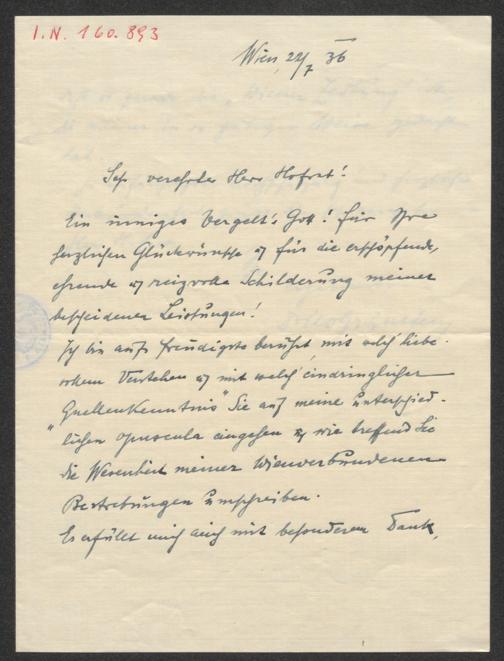 I.N. 160.893
Wien, 22/7 36
Sehr verehrter Herr Hofrat!
Ein inniges Vergelt's Gott! für Ihre
herzlichen Glückwünsche u für die erschöpfende,
ehrende u reizvolle Schilderung meiner
bescheidenen Leistungen!
Ich bin aufs freudigste berührt, mit welch' liebe-
vollem Verstehen u mit welch' eindringlicher
"Quellenkenntnis" Sie auf meine unterschied-
lichen opuscula eingehen u wie treffend Sie
die Wesenheit meiner wienverbundenen
Bestrebungen umschreiben.
Es erfüllt mich auch mit besonderem Dank,